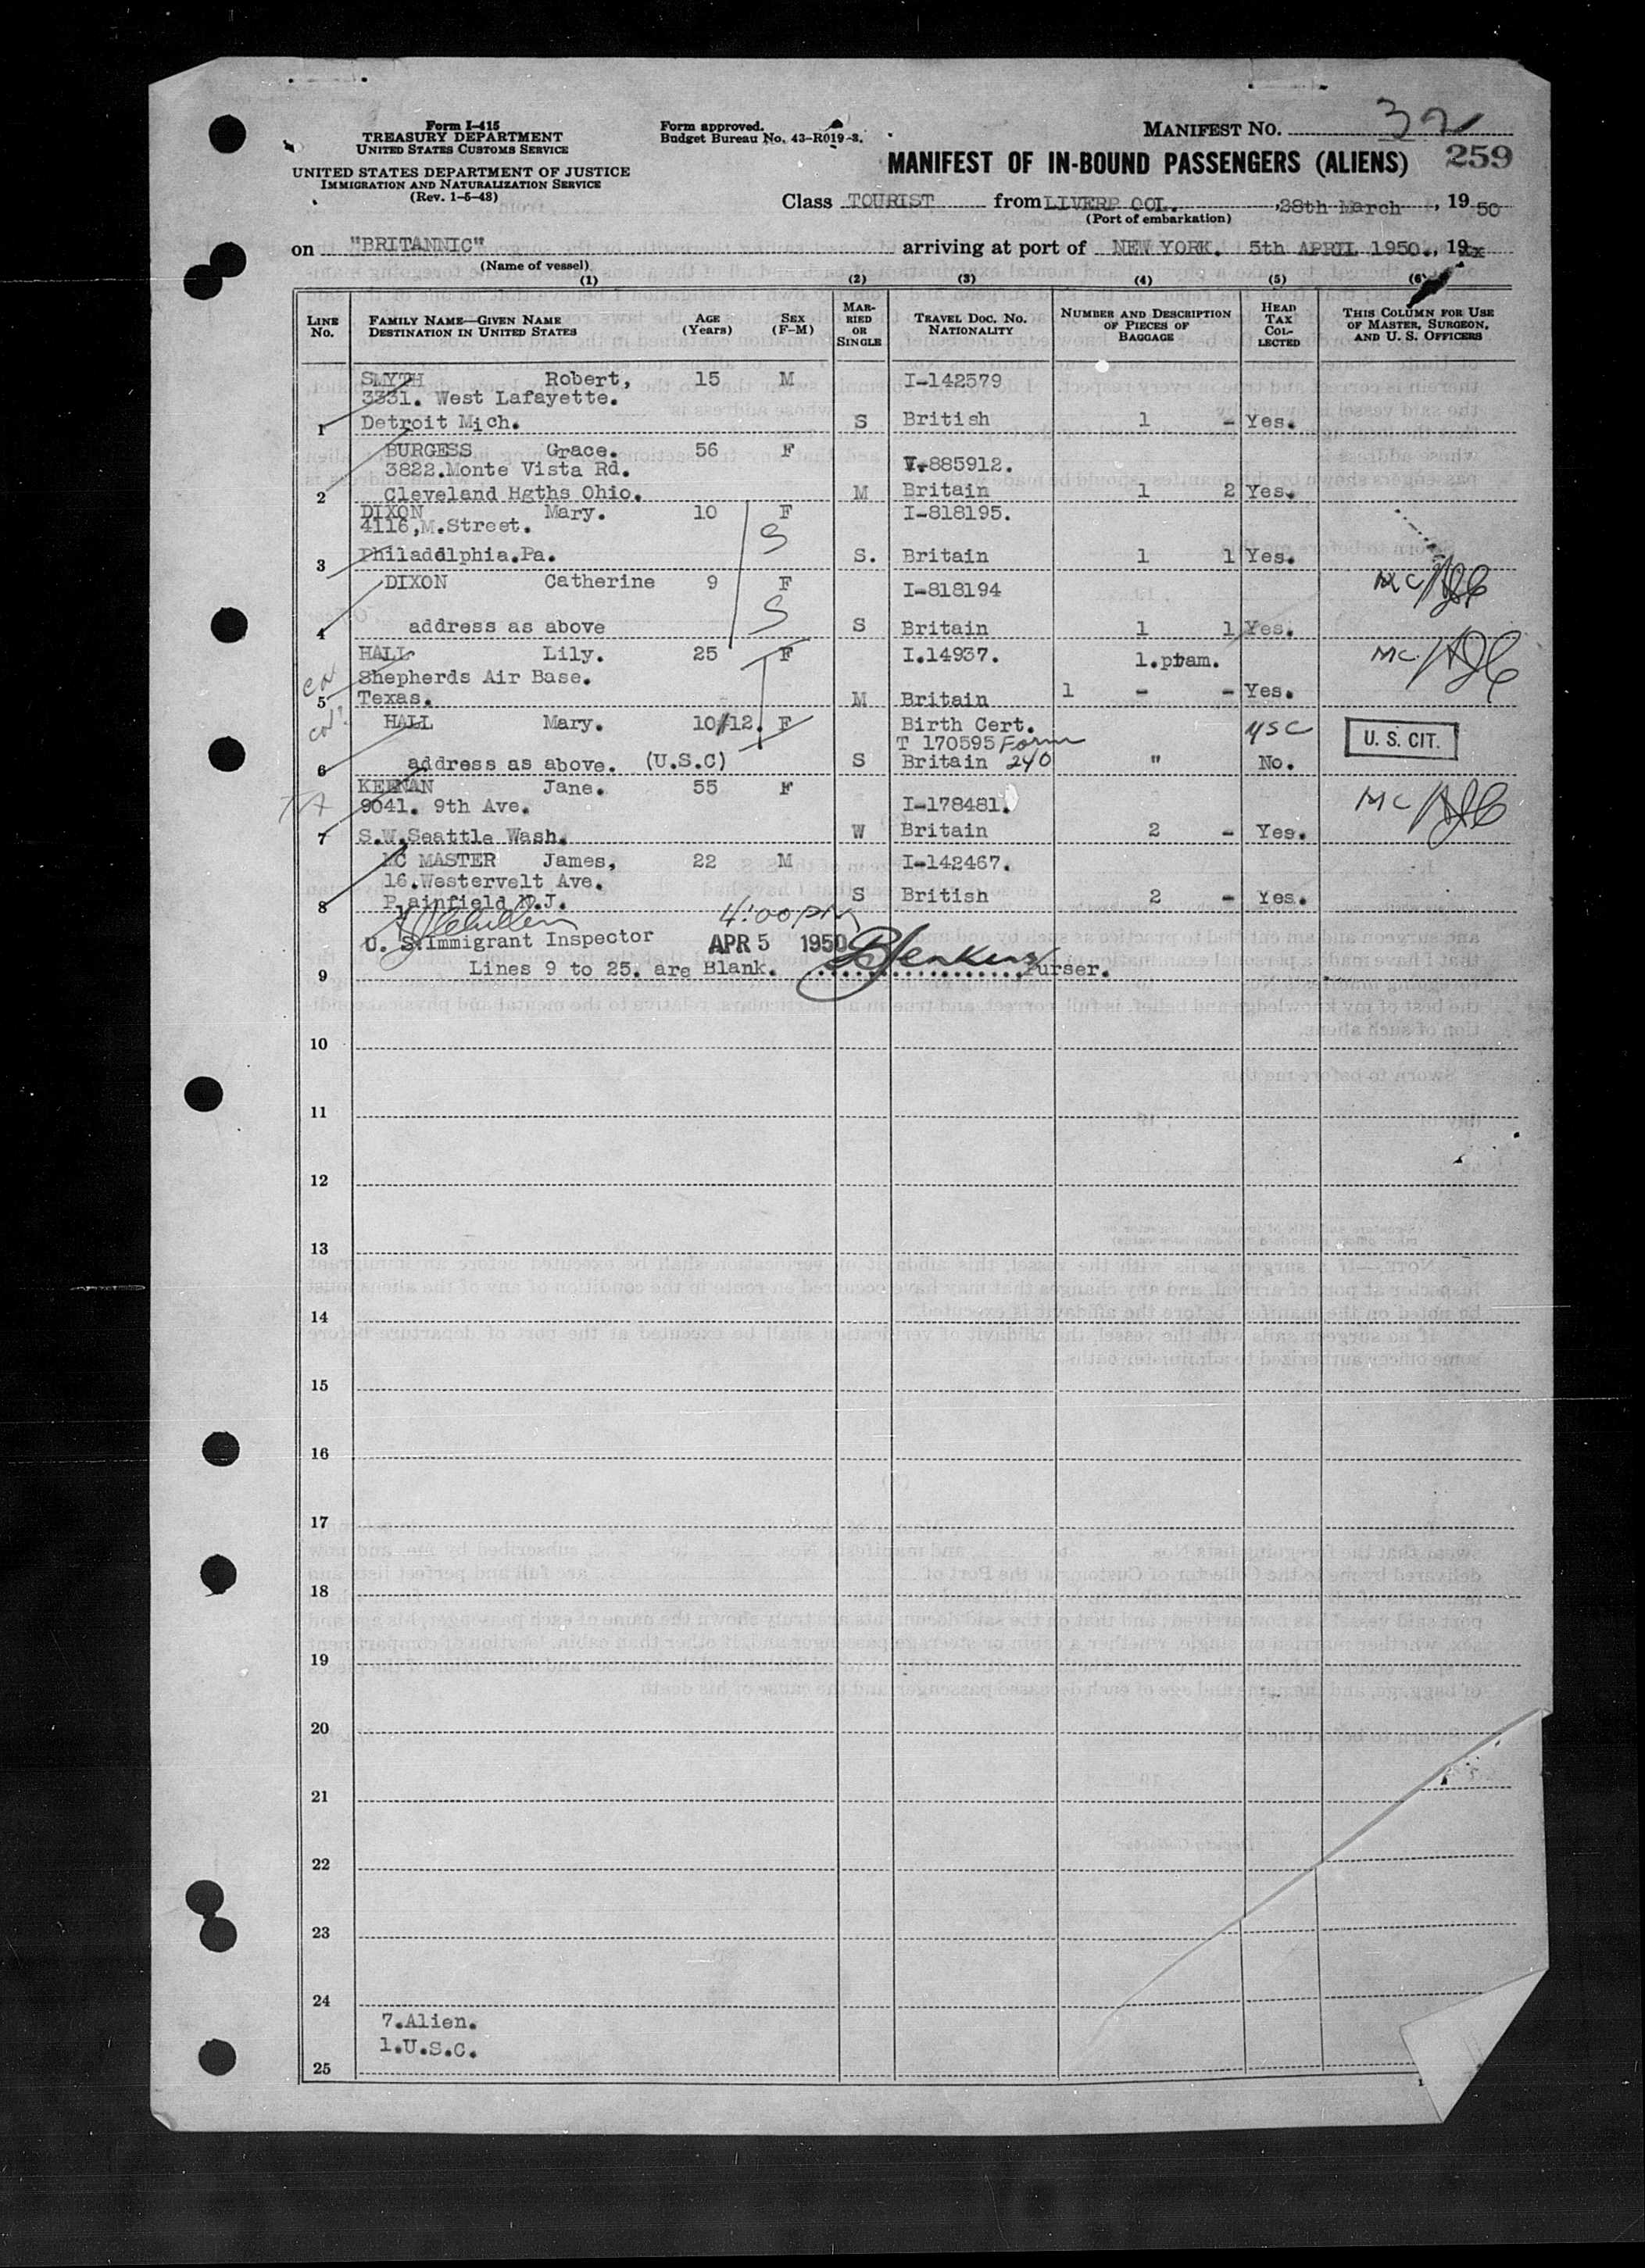 Form I-415
TREASURY DEPARTMENT
UNITED STATES CUSTOMS SERVICE
UNITED STATES DEPARTMENT OF JUSTICE
IMMIGRATION AND NATURALIZATION SERVICE
(Rev. 1-5-48)
Form approved.
Budget Bureau No. 43-R019-3.
MANIFEST NO. 32
MANIFEST OF IN-BOUND PASSENGERS (ALIENS) 259
Class TOURIST from LIVERP OOL. , 28th March , 19 50
(Port of embarkation)
on "BRITANNIC" arriving at port of NEW YORK. 5th APRIL 1950., 19xx
(Name of vessel)
(1) (2) (3) (4) (5) (6)
LINE NO. FAMILY NAME—GIVEN NAME DESTINATION IN UNITED STATES AGE (Years) SEX (F-M) MARRIED OR SINGLE TRAVEL DOC. NO. NATIONALITY NUMBER AND DESCRIPTION OF PIECES OF BAGGAGE HEAD TAX COLLECTED THIS COLUMN FOR USE OF MASTER, SURGEON, AND U. S. OFFICERS
SMYTH Robert, 15 M I-142579
3331. West Lafayette.
1 Detroit Mich. S British 1 - Yes.
BURGESS Grace. 56 F
3822.Monte Vista Rd. V-885912.
2 Cleveland Hgths Ohio. M Britain 1 2 Yes.
DIXON Mary. 10 F I-818195.
4116,M.Street. S
3 Philadelphia.Pa. S. Britain 1 1 Yes.
DIXON Catherine 9 F I-818194 MC
S
4 address as above S Britain 1 1 Yes.
HALL Lily. 25 F I.14937. 1.pram. MC
Shepherds Air Base.
5 Texas. M Britain 1 - - Yes.
HALL Mary. 10/12. F Birth Cert. USC U. S. CIT.
T 170595 Form
6 address as above. (U.S.C) S Britain 240 " No.
KEENAN Jane. 55 F MC
9041. 9th Ave. I-178481.
7 S.W.Seattle Wash. W Britain 2 - Yes.
MC MASTER James, 22 M I-142467.
16.Westervelt Ave.
8 Plainfield N.J. S British 2 - Yes.
4:00 pm
U. S. Immigrant Inspector APR 5 1950 Jenkins
9 Lines 9 to 25. are Blank. Purser.
10
11
12
13
14
15
16
17
18
19
20
21
22
23
24
7.Alien.
1.U.S.C.
25